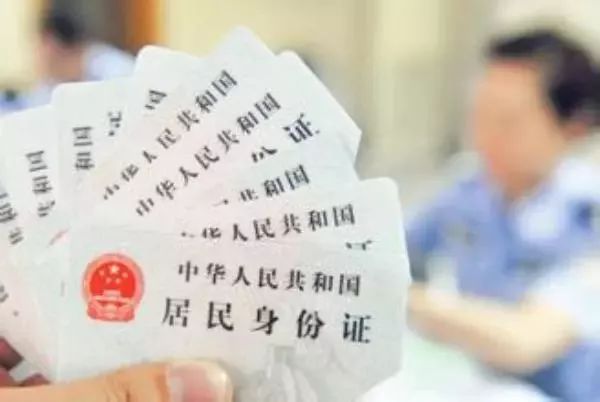 国
和国
中华人民共和国
中华人民共和国
份证
共和国
华人民共和国
证
中华人民共和国
居民身份证